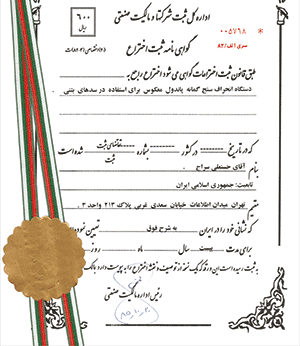 اداره کل ثبت شرکتها و مالکیت صنعتی
۶۰۰
ریال
* ۰۰۵۷۶۸
سری الف/۸۲
گواهی نامه ثبت اختراع
طبق قانون ثبت اختراعات گواهی می شود اختراع راجع به
دستگاه انحراف سنج گمانه پاندول معکوس برای استفاده در سدهای بتنی .
که در تاریخ در کشور بشماره تقاضای ثبت ثبت شده است
بنام آقای حسنعلی سراج
تابعیت: جمهوری اسلامی ایران
مقیم تهران میدان اطلاعات خیابان سعدی غربی پلاک ۲۱۳ واحد ۳ .
که نشانی خود را در ایران به شرح فوق تعیین نموده
برای مدت بیست سال ماه روز
به ثبت رسیده است این ورقه که یک نسخه از توصیف و نقشه اختراع به پیوست دارد
رئیس اداره مالکیت صنعتی